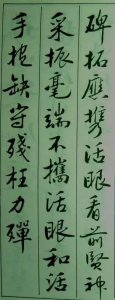 碑拓應携活眼看前賢神
采振毫端不攜活眼和活
手抱缺守殘枉力殫